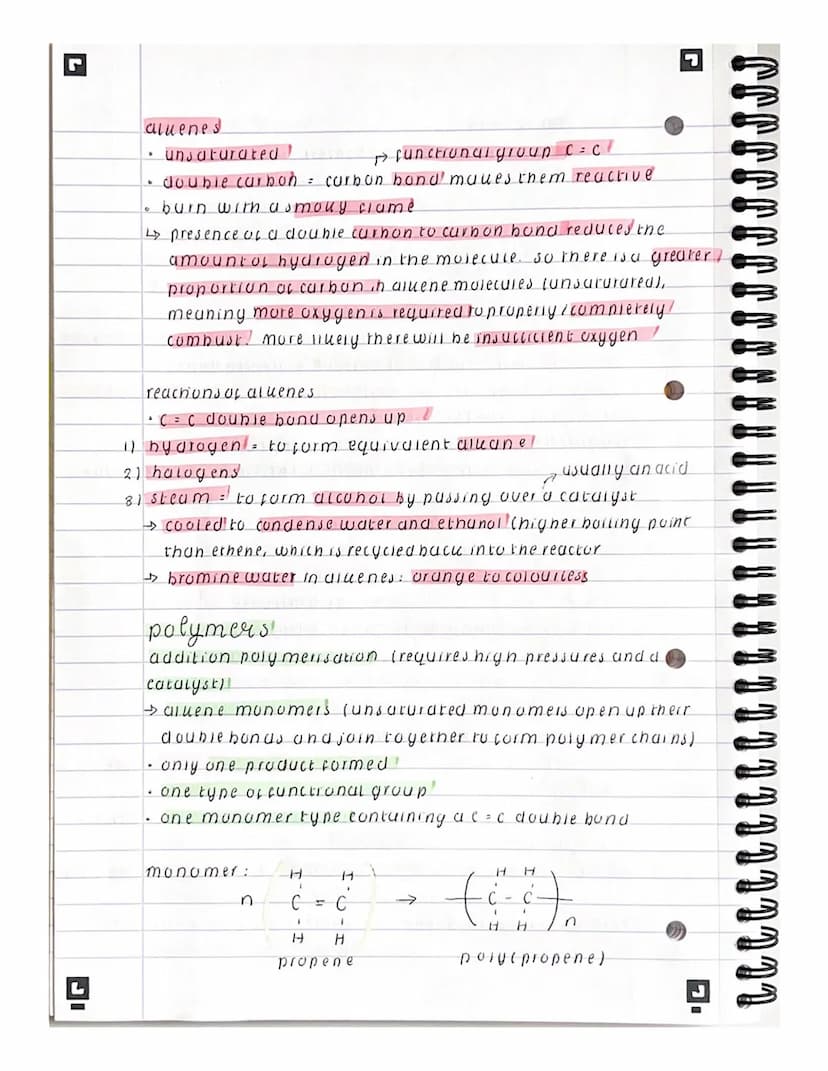 alkenes
· unsaturated → functional group C = C
· double carbon = carbon bond makes them reactive
· burn with a smoky flame
↳ presence of a double carbon to carbon bond reduces the
amount of hydrogen in the molecule. so there is a greater
proportion of carbon in alkene molecules (unsaturated),
meaning more oxygen is required to properly / completely
combust. more likely there will be insufficient oxygen
reactions of alkenes
· C = C double bond opens up
1) hydrogen = to form equivalent alkane
2) halogens → usually an acid
3) steam = to form alcohol by passing over a catalyst
→ cooled to condense water and ethanol (higher boiling point
than ethene, which is recycled back into the reactor
→ bromine water in alkenes: orange to colourless
polymers
addition polymerisation (requires high pressures and a
catalyst)
→ alkene monomers (unsaturated monomers open up their
double bonds and join together to form polymer chains)
· only one product formed
· one type of functional group
· one monomer type containing a C = C double bond
monomer: H H H H
n ( C = C ) → ( C - C )
H H H H n
propene poly(propene)